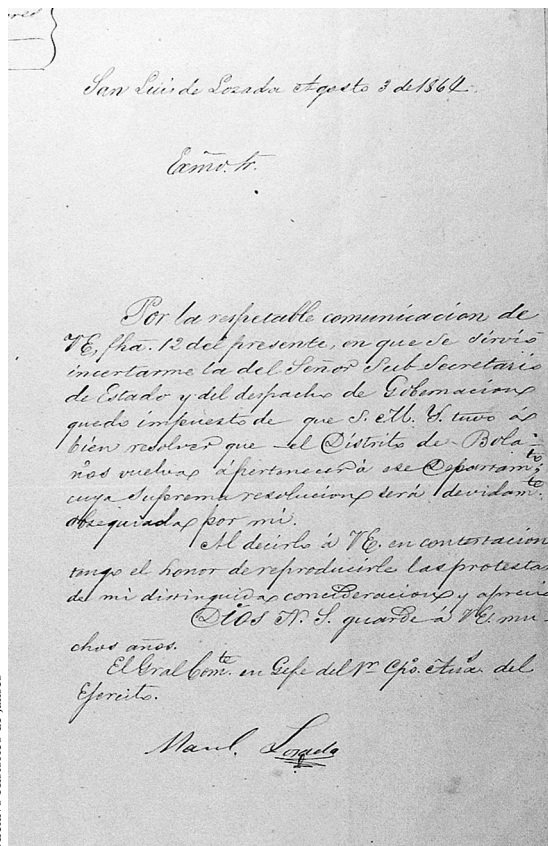 San Luis de Lozada Agosto 3 de 1864.
Exmõ. Sr.
Por la respetable comunicacion de
VE, fha. 12 del presente, en que se sirvió
incertarme la del Señor Sub Secretario
de Estado y del despacho de Gobernacion
quedo impuesto de que S. M. Y. tuvo á
bien resolver que el Distrito de Bola-
ños vuelva á pertenecer á ese Departamto;
cuya Suprema resolucion será devidamte.
obsequiada por mi.
Al decirlo á VE. en contestacion
tengo el honor de reproducirle las protesta
de mi distinguida concideracion y apreci
DIOS N. S. guarde á VE. mu-
chos años.
El Gral Comte. en Gefe del Cpo. Aus. del
Ejercito.
Manl. Lozada